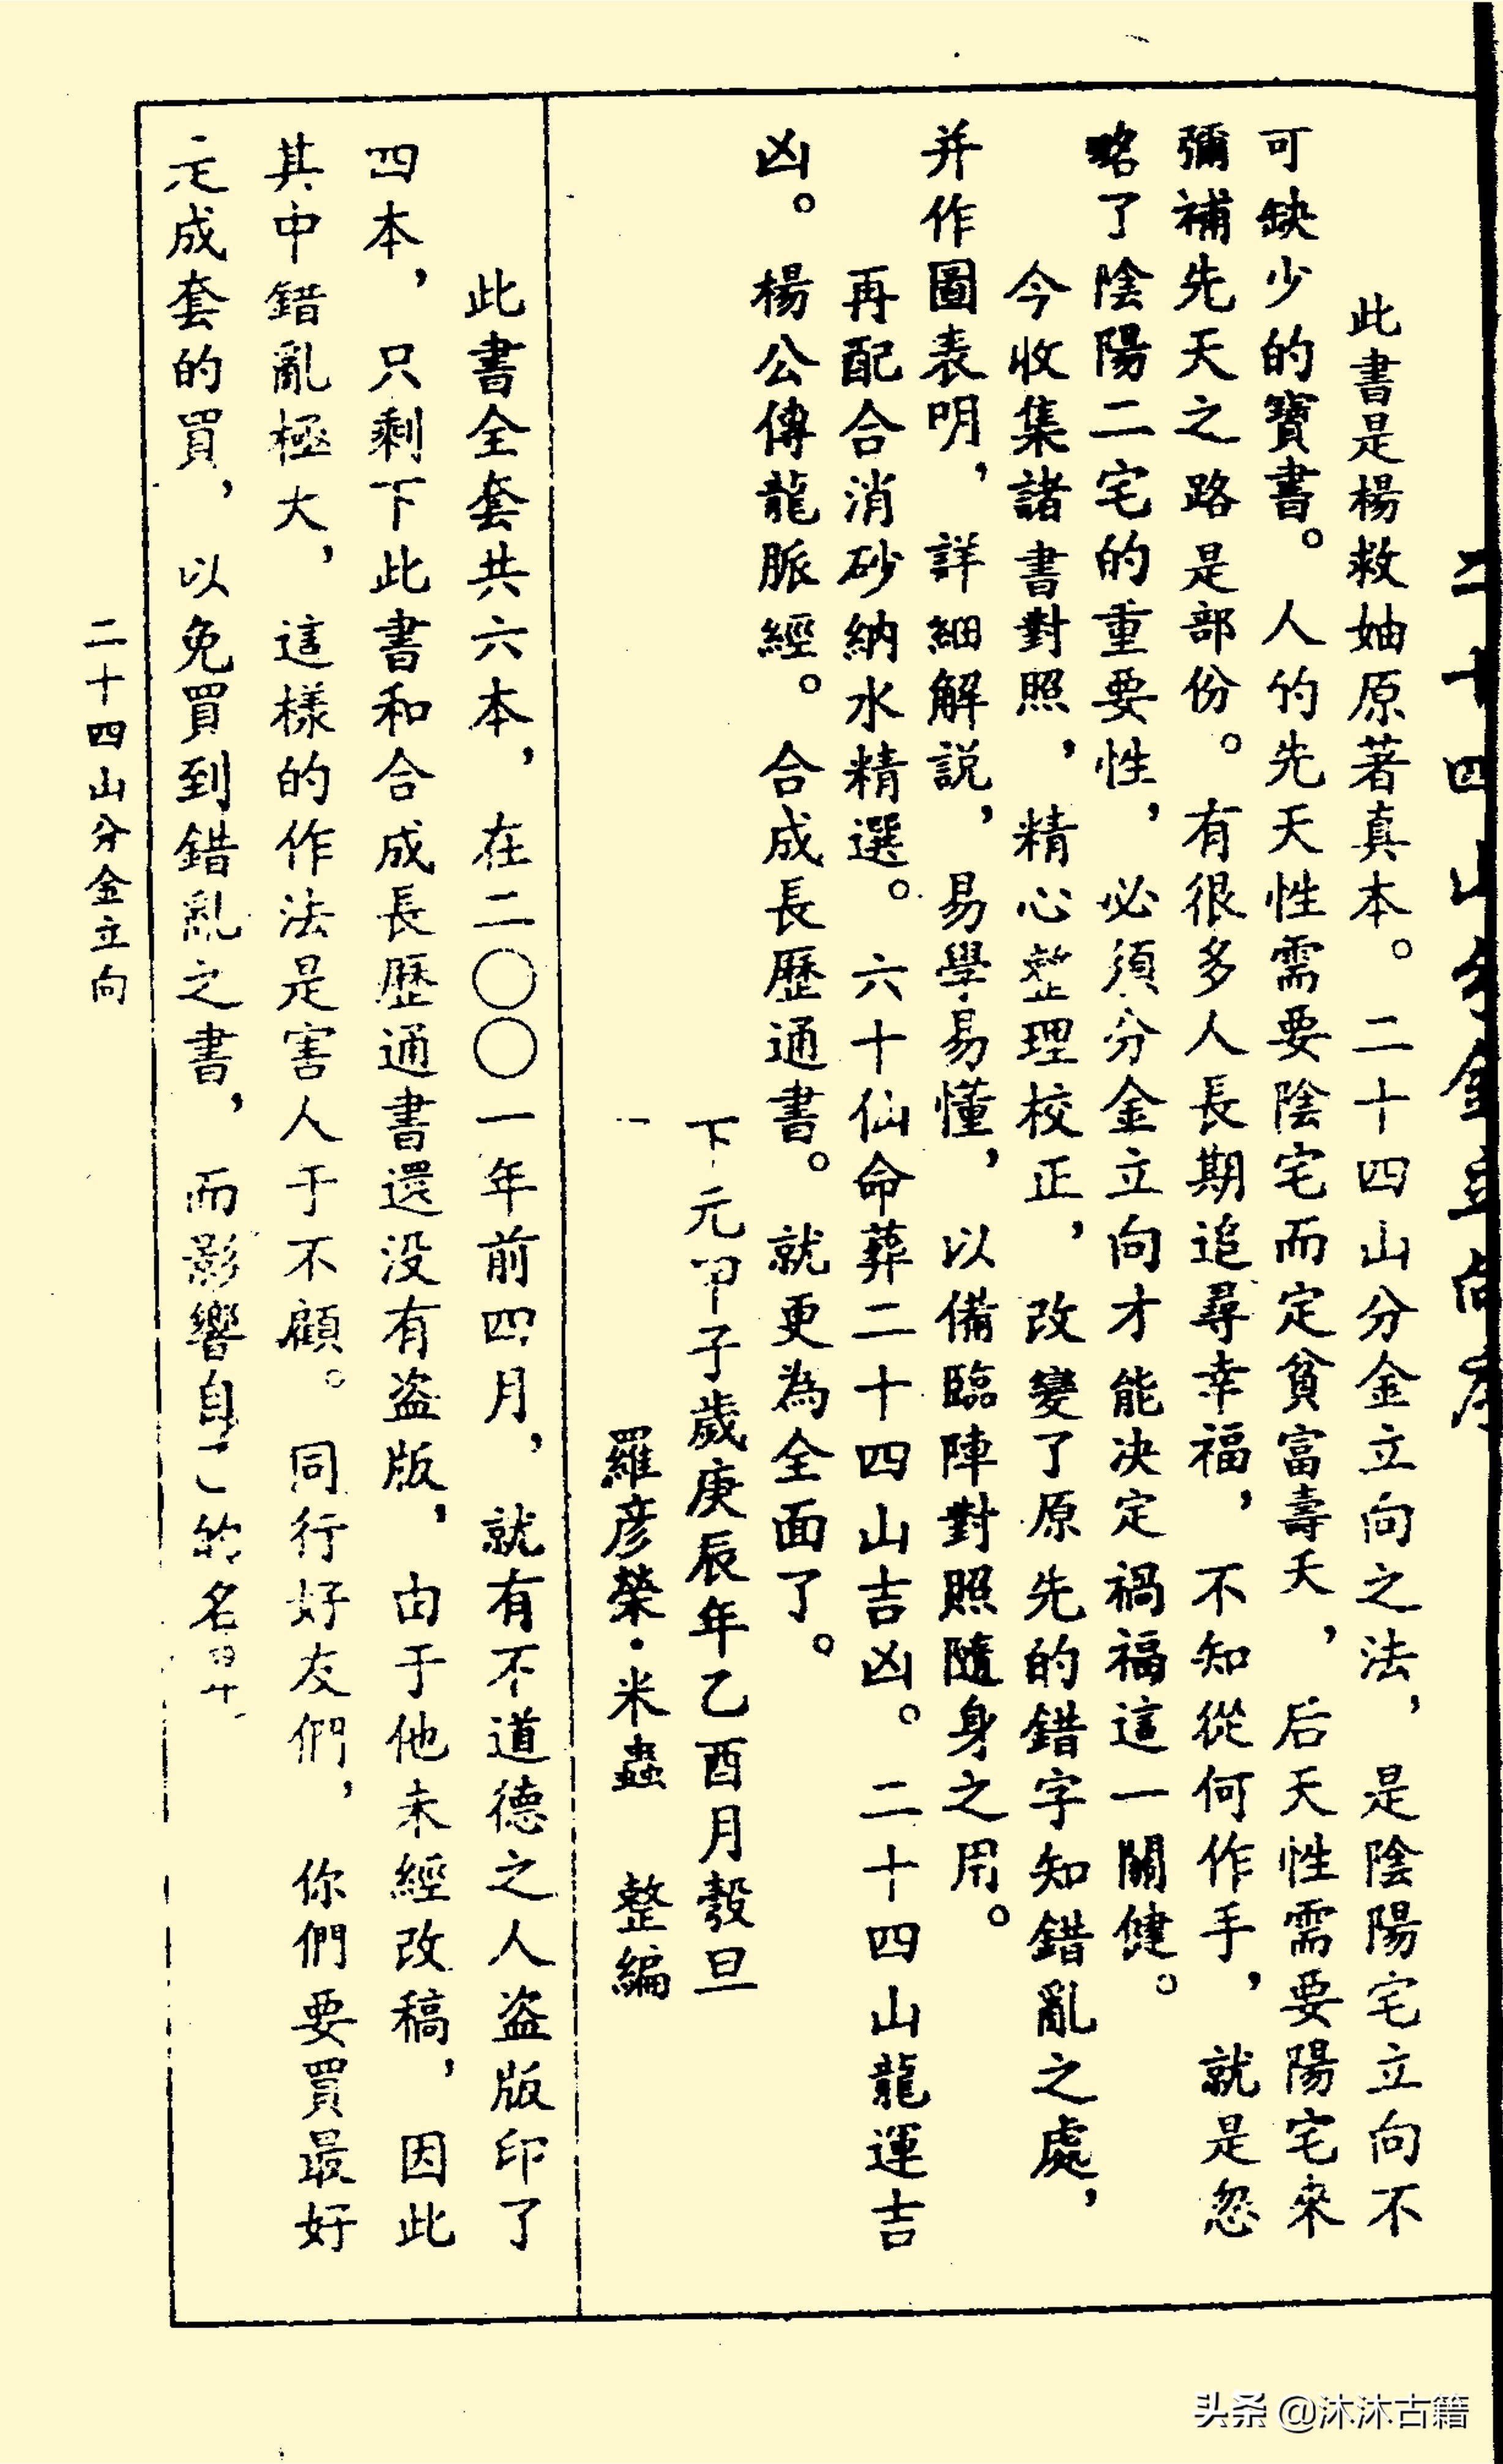 二十四山分金立向序
此書是楊救妯原著真本。二十四山分金立向之法，是陰陽宅立向不
可缺少的寶書。人的先天性需要陰宅而定貧富壽夭，后天性需要陽宅來
彌補先天之路是部份。有很多人長期追尋幸福，不知從何作手，就是忽
略了陰陽二宅的重要性，必須分金立向才能决定禍福這一關健。
今收集諸書對照，精心整理校正，改變了原先的錯字知錯亂之處，
并作圖表明，詳細解説，易學易懂，以備臨陣對照隨身之用。
再配合消砂納水精選。六十仙命葬二十四山吉凶。二十四山龍運吉
凶。楊公傳龍脈經。合成長歷通書。就更為全面了。
下元甲子歲庚辰年乙酉月榖旦
羅彦榮·米蟲 整編
此書全套共六本，在二〇〇一年前四月，就有不道德之人盗版印了
四本，只剩下此書和合成長歷通書還没有盗版，由于他未經改稿，因此
其中錯亂極大，這樣的作法是害人于不顧。同行好友們，你們要買最好
是成套的買，以免買到錯亂之書，而影響自己的名
二十四山分金立向
头条@沐沐古籍